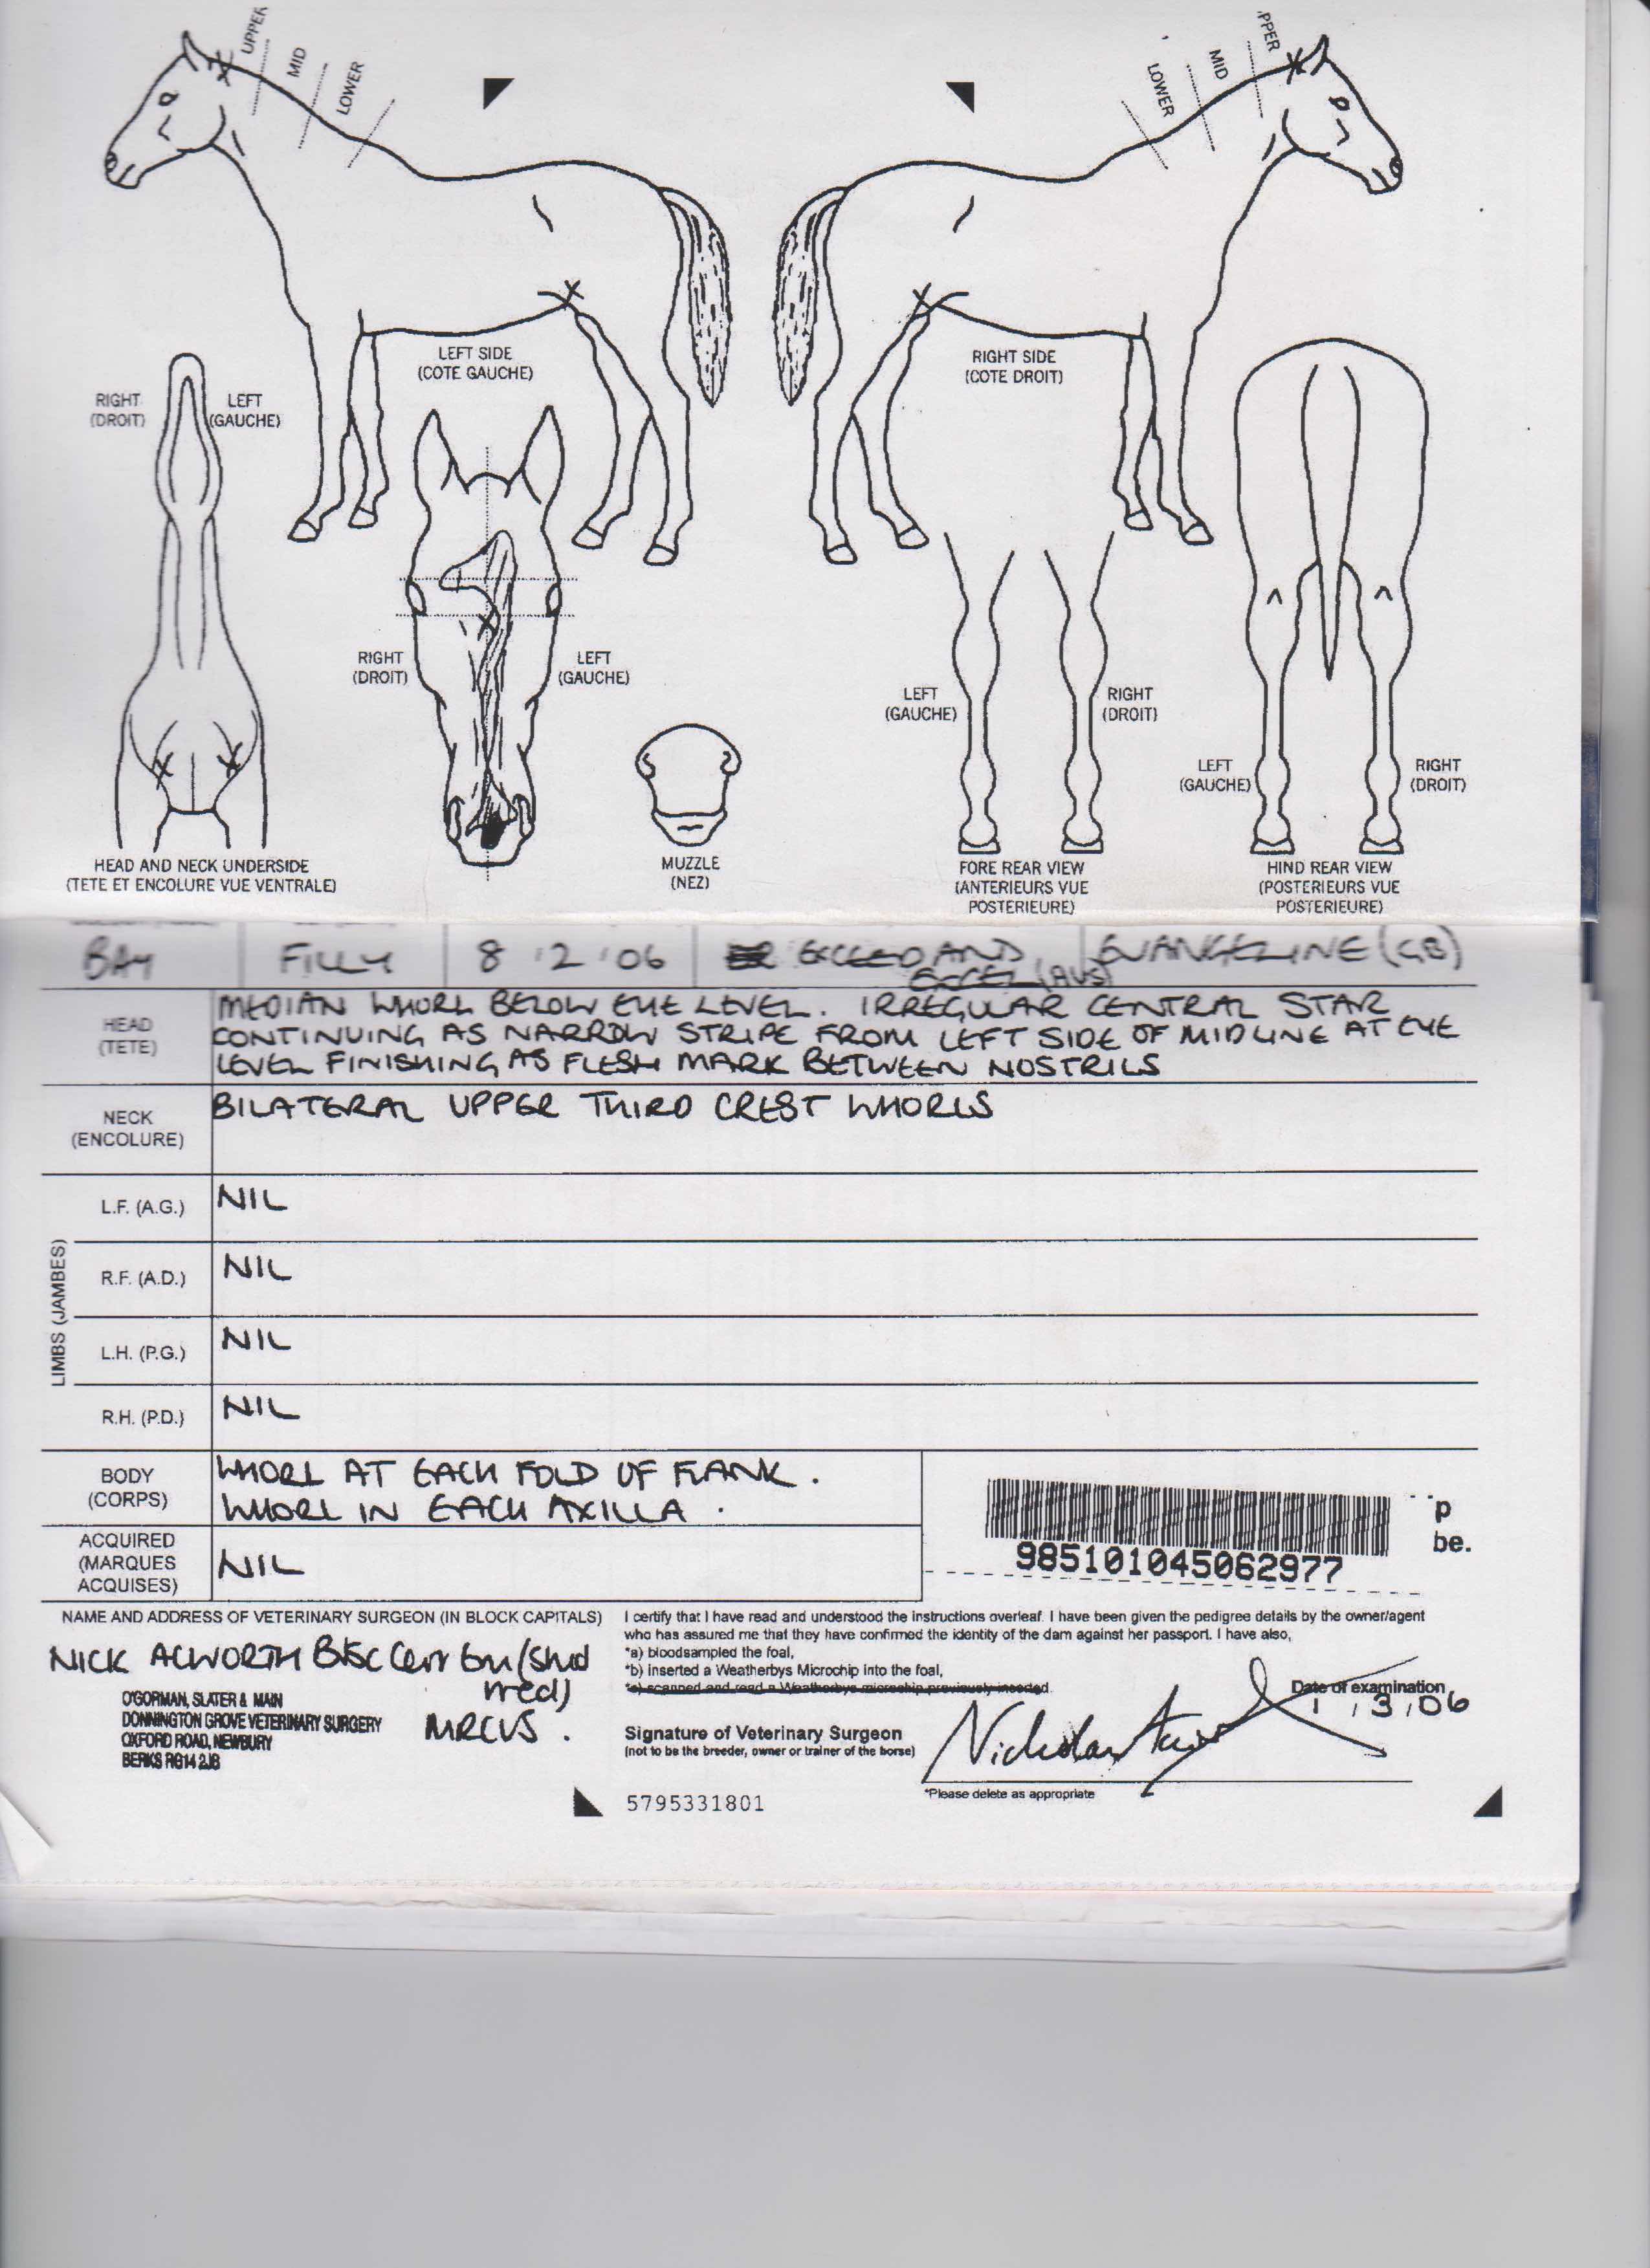 UPPER MID LOWER
LOWER MID PPER
LEFT SIDE
(COTE GAUCHE)
RIGHT SIDE
(COTE DROIT)
RIGHT
(DROIT)
LEFT
(GAUCHE)
RIGHT
(DROIT)
LEFT
(GAUCHE)
LEFT
(GAUCHE)
RIGHT
(DROIT)
LEFT
(GAUCHE)
RIGHT
(DROIT)
HEAD AND NECK UNDERSIDE
(TETE ET ENCOLURE VUE VENTRALE)
MUZZLE
(NEZ)
FORE REAR VIEW
(ANTERIEURS VUE
POSTERIEURE)
HIND REAR VIEW
(POSTERIEURS VUE
POSTERIEURE)
BAY FILLY 8 2 06 EXCEED AND EVANGELINE (GB)
EXCEL (AUS)
HEAD
(TETE)
MEDIAN WHORL BELOW EYE LEVEL. IRREGULAR CENTRAL STAR
CONTINUING AS NARROW STRIPE FROM LEFT SIDE OF MIDLINE AT EYE
LEVEL FINISHING AS FLESH MARK BETWEEN NOSTRILS
NECK
(ENCOLURE)
BILATERAL UPPER THIRD CREST WHORLS
LIMBS (JAMBES)
L.F. (A.G.) NIL
R.F. (A.D.) NIL
L.H. (P.G.) NIL
R.H. (P.D.) NIL
BODY
(CORPS)
WHORL AT EACH FOLD OF FLANK.
WHORL IN EACH AXILLA.
ACQUIRED
(MARQUES
ACQUISES)
NIL
p
be.
985101045062977
NAME AND ADDRESS OF VETERINARY SURGEON (IN BLOCK CAPITALS)
NICK ACWORTH BVSc Cert Em (Stud
med)
MRCVS.
O'GORMAN, SLATER & MAIN
DONNINGTON GROVE VETERINARY SURGERY
OXFORD ROAD, NEWBURY
BERKS RG14 2JB
I certify that I have read and understood the instructions overleaf. I have been given the pedigree details by the owner/agent
who has assured me that they have confirmed the identity of the dam against her passport. I have also,
*a) bloodsampled the foal,
*b) inserted a Weatherbys Microchip into the foal,
*c) scanned and read a Weatherbys microchip previously inserted
Date of examination
1 / 3 / 06
Signature of Veterinary Surgeon
(not to be the breeder, owner or trainer of the horse)
*Please delete as appropriate
5795331801